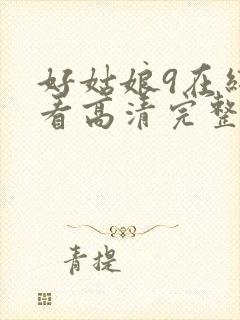 好姑娘9在线
看高清完整
青提